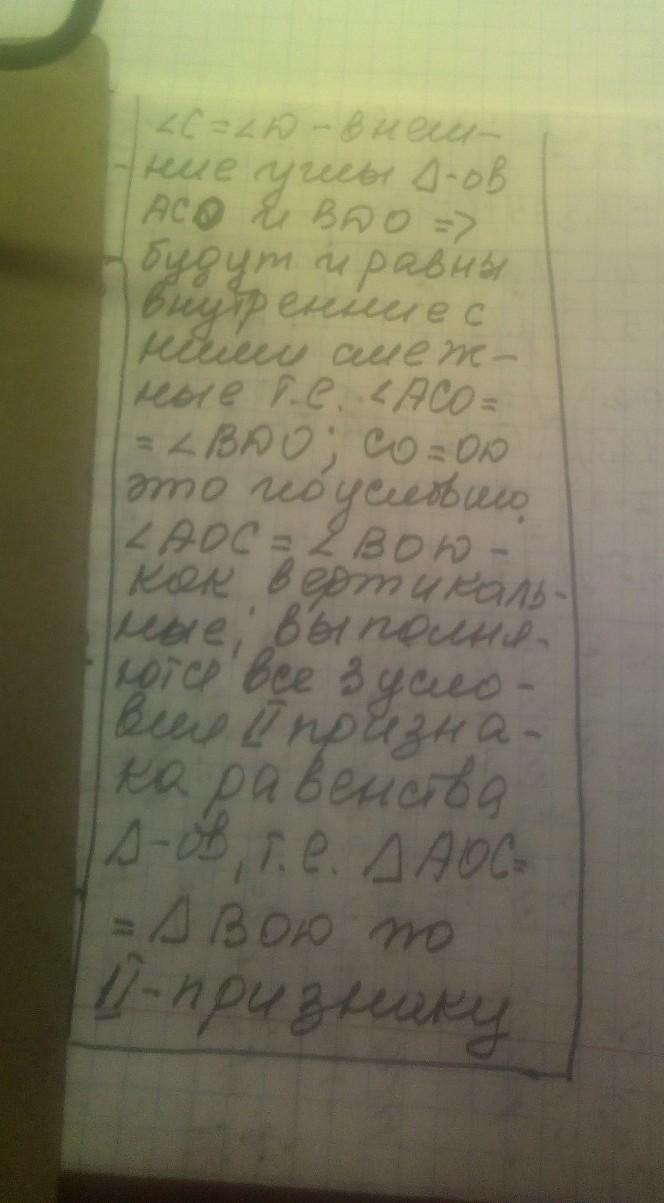 ∠C=∠D - внеш-
ние углы Δ-ов
ACO и BDO =>
будут и равны
внутренние с
ними смеж-
ные т.е. ∠ACO=
=∠BDO; CO=OD
это по условию.
∠AOC=∠BOD -
как вертикаль-
ные; выполня-
ются все 3 усло-
вия II призна-
ка равенства
Δ-ов, т.е. ΔAOC=
=ΔBOD по
II-признаку